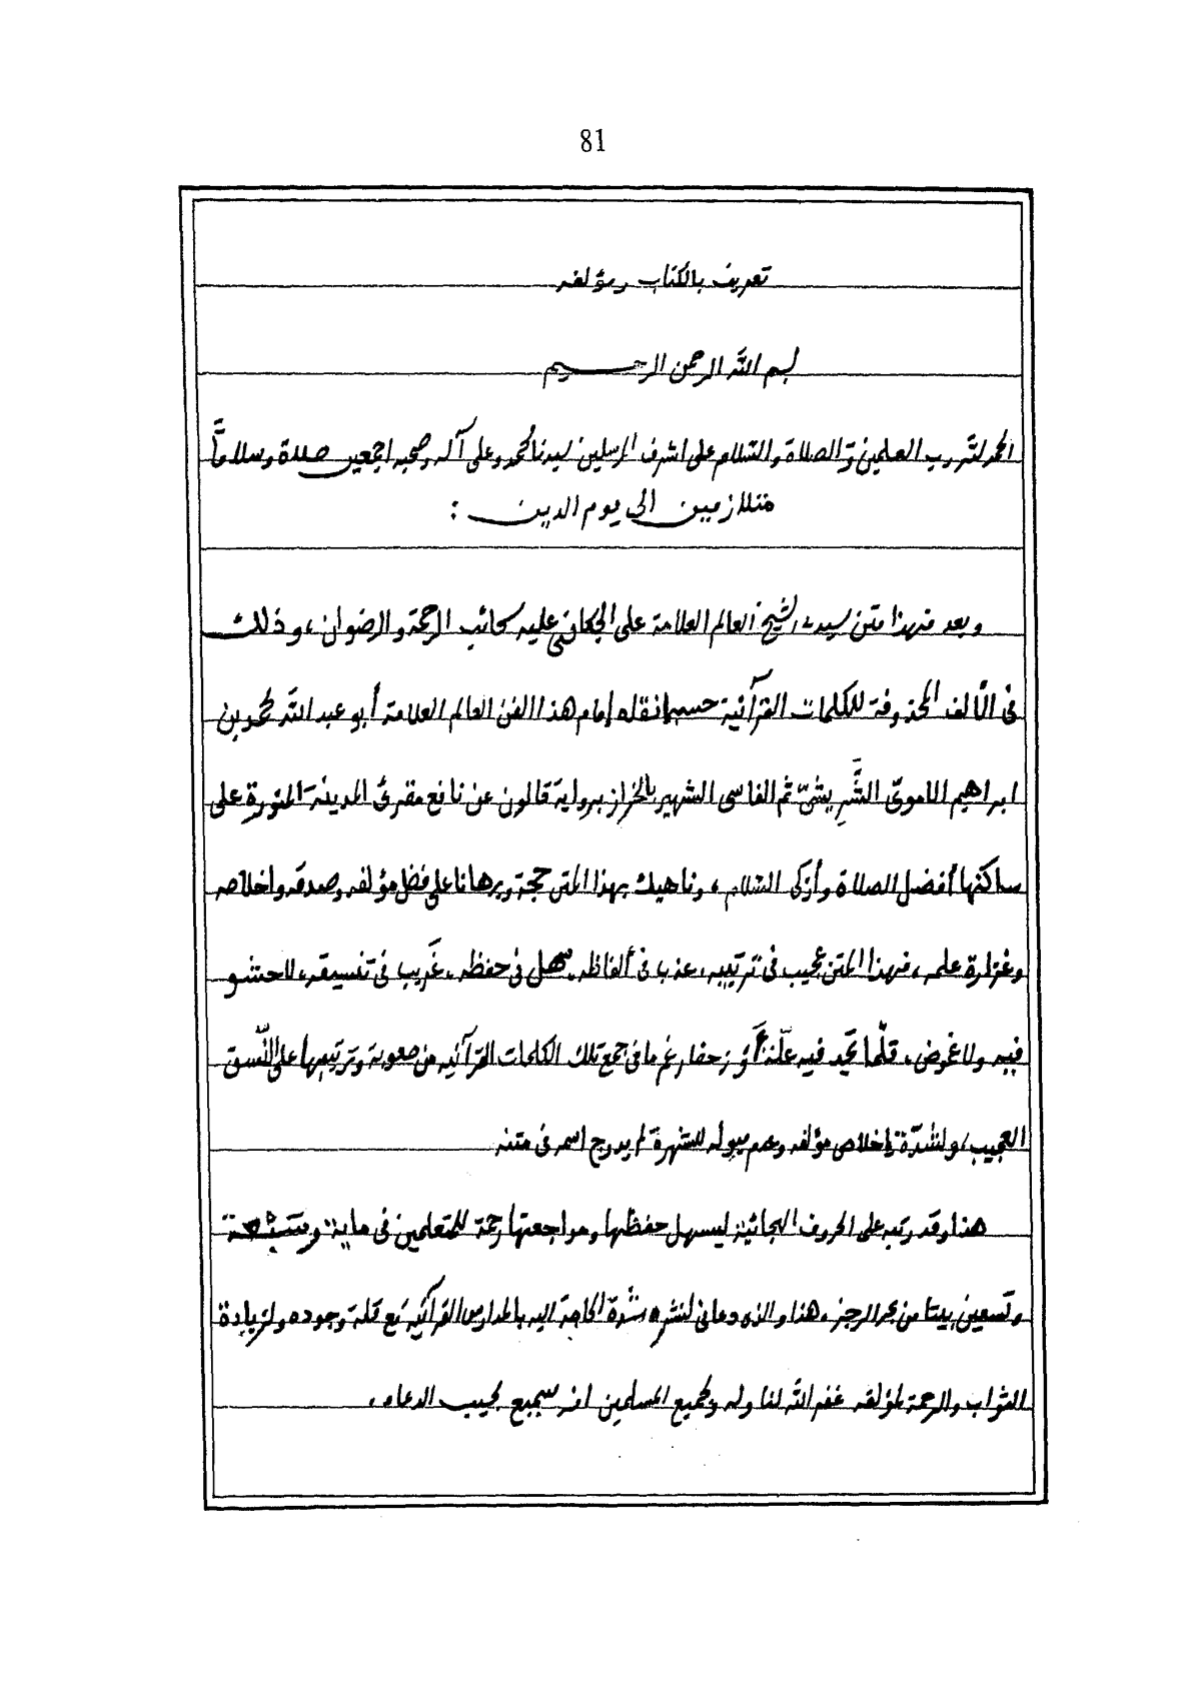 81
تعريف بالكتاب ومؤلفه
بسم الله الرحمن الرحيم
الحمد لله رب العلمين والصلاة والسلام على اشرف المرسلين سيدنا محمد وعلى آله وصحبه اجمعين صلاة وسلاماً
متلازمين الى يوم الدين :
وبعد فهذا متن سيدى الشيخ العالم العلامة على الجكانى عليه سحائب الرحمة والرضوان، وذلك
فى الألف المحذوفة للكلمات القرآنية حسبما نقله إمام هذا الفن العالم العلامة أبو عبد الله محمد بن
ابراهيم الاموىّ الشَّرِيشىّ ثم الفاسى الشهير بالخراز برواية قالون عن نافع مقرئ المدينة المنورة على
ساكنها أفضل الصلاة وأزكى السلام، وناهيك بهذا المتن حجة وبرهانا على فضل مؤلفه وصدقه واخلاصه
وغزارة علمه، فهذا المتن عجيب فى ترتيبه، عذب فى ألفاظه، سهل فى حفظه، غَريب فى تنسيقه، لاحشو
فيه ولا غموض، قلّما تجد فيه علّة أَوْ زحفا رغم ما فى جمع تلك الكلمات القرآنيه من صعوبة وترتيبها على النّسق
العجيب، ولشدّة إخلاص مؤلفه وعدم ميوله للشهرة لم يدرج اسمه فى متنه
هذا وقد رتبه على الحروف الهجائية ليسهل حفظها ومراجعتها رحمة للمتعلمين فى ماية وستة
وتسعين بيتا من بحر الرجز، هذا والذى دعانى لنشره شدّة الحاجة اليه بالمدارس القرآنية مَع قلة وجوده ولزيادة
الثواب والرحمة لمؤلفه غفر الله لنا وله ولجميع المسلمين انه سميع مجيب الدعاء.